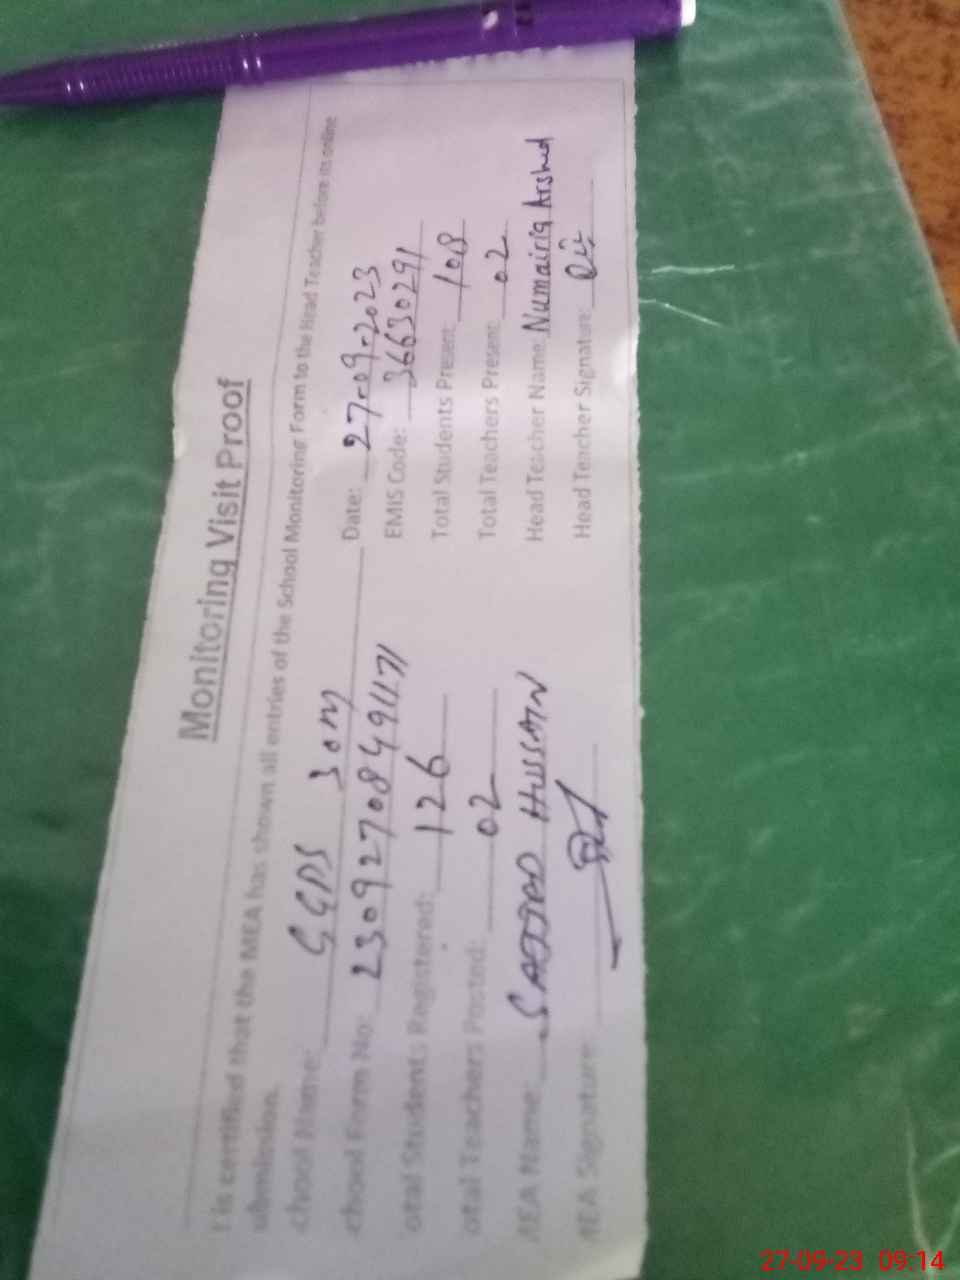 Monitoring Visit Proof
t is certified that the MEA has shown all entries of the School Monitoring Form to the Head Teacher before its online
ubmission.
chool Name: GGPS 30M Date: 27-09-2023
chool Form No: 23092708491171 EMIS Code: 36630291
otal Students Registered: 126 Total Students Present: 108
otal Teachers Posted: 02 Total Teachers Present: 02
MEA Name: SAJJAD HUSSAIN Head Teacher Name: Numairia Arshed
MEA Signature: Head Teacher Signature:
27-09-23 09:14